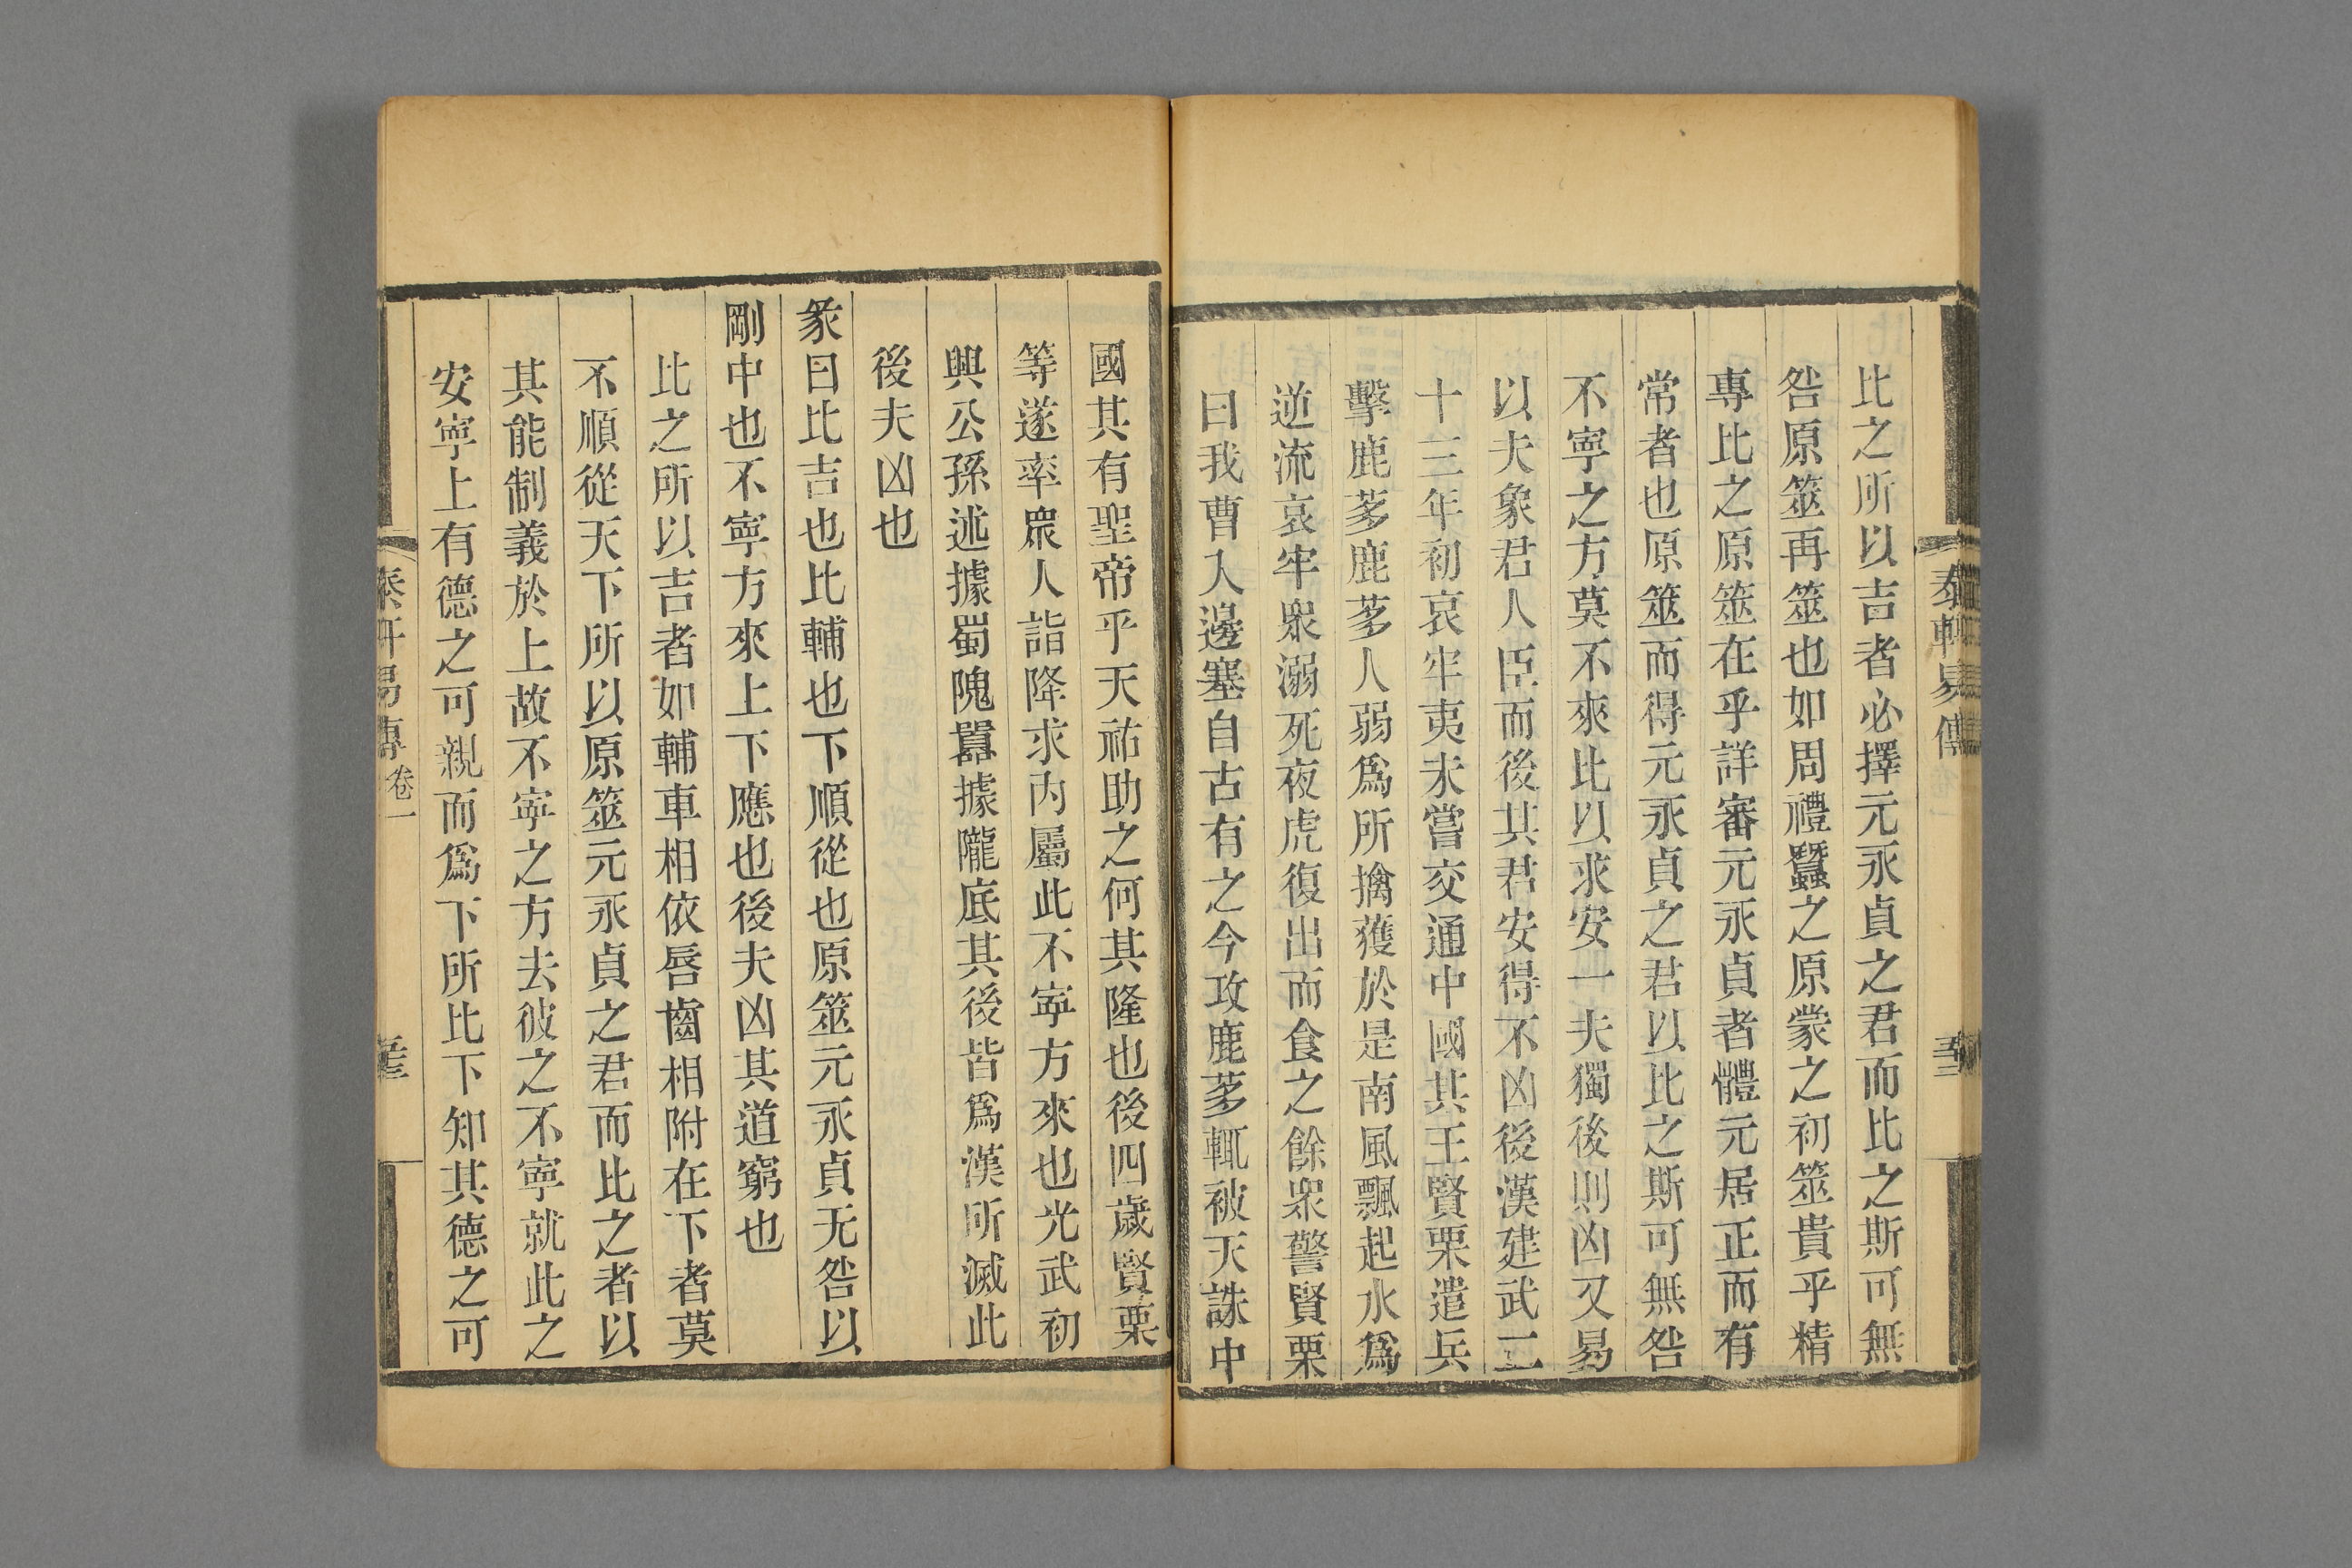 比之所以吉者必擇元永貞之君而比之斯可無
咎原筮再筮也如周禮蠶之原蒙之初筮貴乎精
專比之原筮在乎詳審元永貞者體元居正而有
常者也原筮而得元永貞之君以比之斯可無咎
不寧之方莫不來比以求安一夫獨後則凶又易
以夫象君人臣而後其君安得不凶後漢建武二
十三年初哀牢夷未嘗交通中國其王賢栗遣兵
擊鹿茤鹿茤人弱爲所擒獲於是南風飄起水爲
逆流哀牢衆溺死夜虎復出而食之餘衆警賢栗
曰我曹入邊塞自古有之今攻鹿茤輒被天誅中
國其有聖帝乎天祐助之何其隆也後四歲賢栗
等遂率衆人詣降求內屬此不寧方來也光武初
興公孫述據蜀隗囂據隴底其後皆爲漢所滅此
後夫凶也
彖曰比吉也比輔也下順從也原筮元永貞无咎以
剛中也不寧方來上下應也後夫凶其道窮也
比之所以吉者如輔車相依唇齒相附在下者莫
不順從天下所以原筮元永貞之君而比之者以
其能制義於上故不寧之方去彼之不寧就此之
安寧上有德之可親而爲下所比下知其德之可
泰軒易傳 卷一